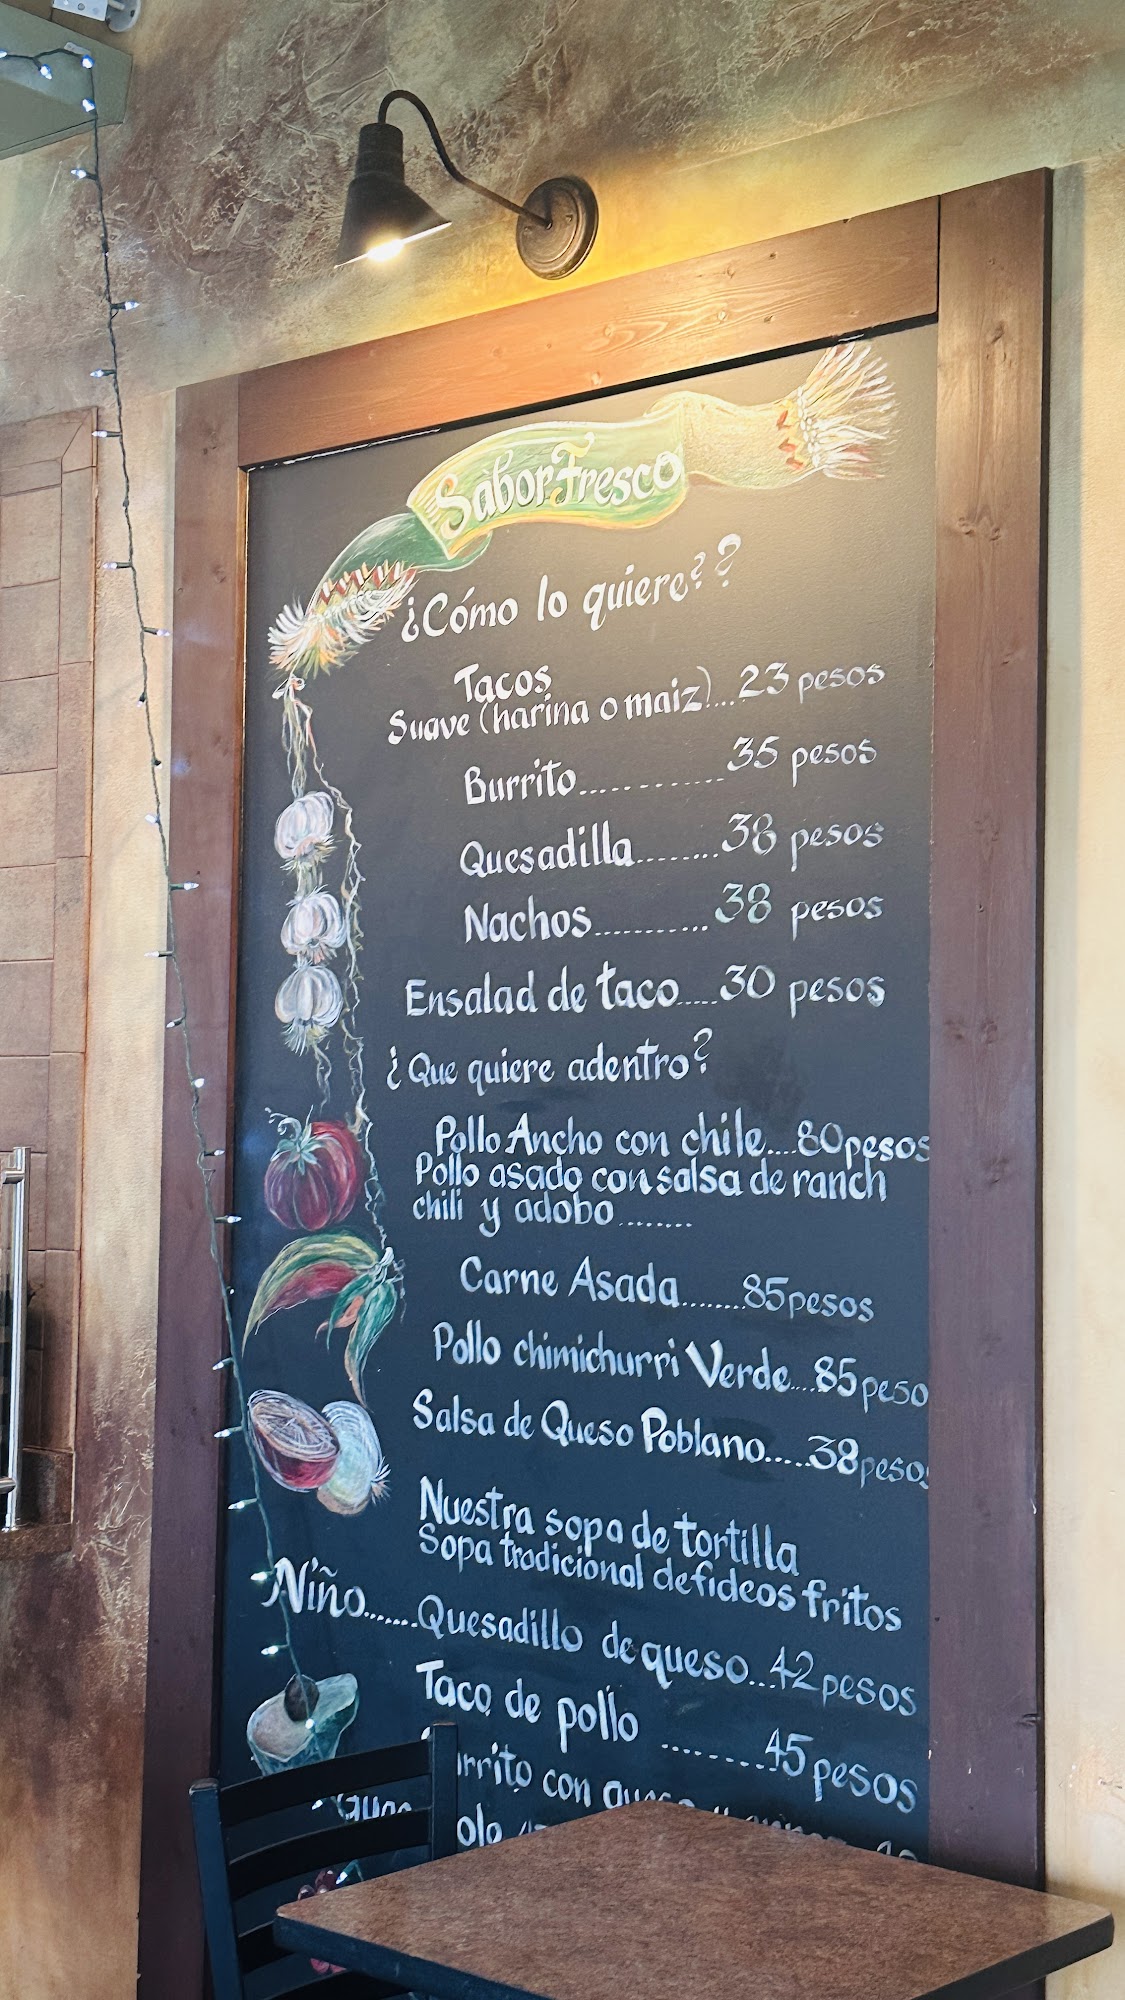 Sabor Fresco
¿Cómo lo quiere??
Tacos
Suave (harina o maiz)....23 pesos
Burrito............35 pesos
Quesadilla.........38 pesos
Nachos...........38 pesos
Ensalad de taco.....30 pesos
¿Que quiere adentro?
Pollo Ancho con chile....80 pesos
Pollo asado con salsa de ranch
chili y adobo.........
Carne Asada........85 pesos
Pollo chimichurri Verde....85 peso
Salsa de Queso Poblano.....38 peso
Nuestra sopa de tortilla
Sopa tradicional de fideos fritos
Niño.......Quesadillo de queso...42 pesos
Taco de pollo ........45 pesos
con